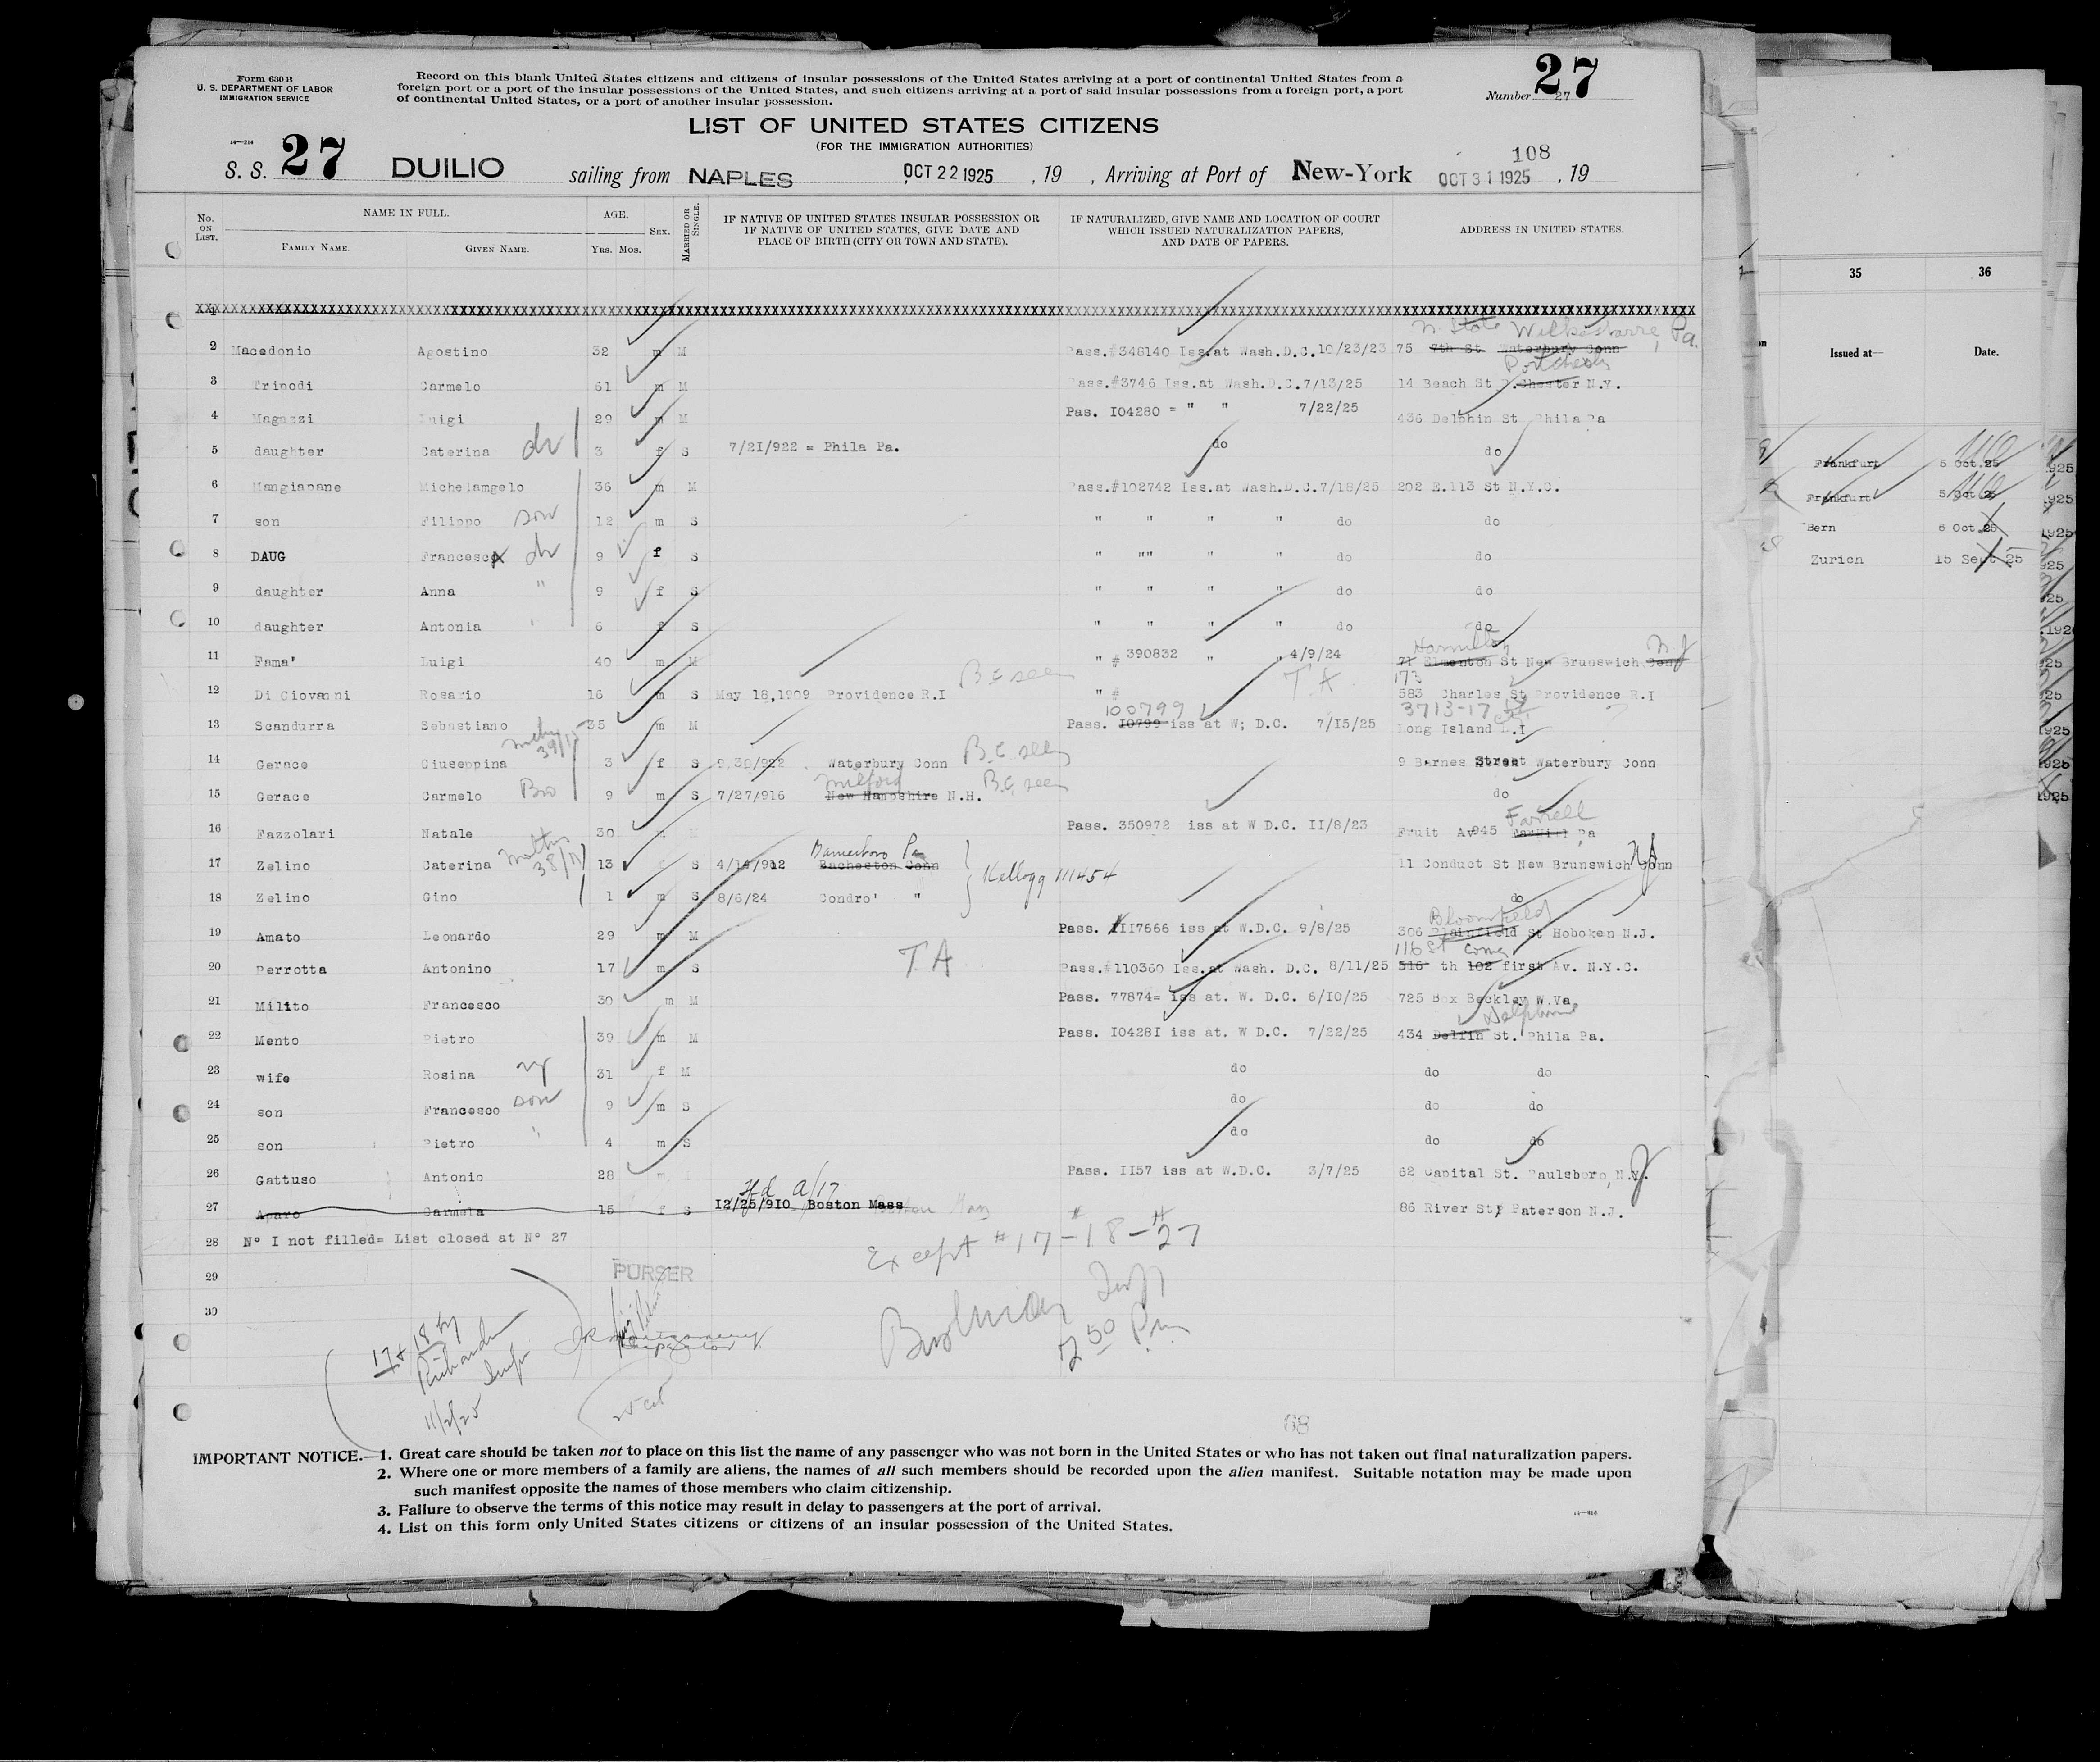 Form 630 B
U. S. DEPARTMENT OF LABOR
IMMIGRATION SERVICE
Record on this blank United States citizens and citizens of insular possessions of the United States arriving at a port of continental United States from a
foreign port or a port of the insular possessions of the United States, and such citizens arriving at a port of said insular possessions from a foreign port, a port
of continental United States, or a port of another insular possession.
Number 27 27
LIST OF UNITED STATES CITIZENS
(FOR THE IMMIGRATION AUTHORITIES)
108
S. S. 27 DUILIO sailing from NAPLES OCT 22 1925 , 19 , Arriving at Port of New-York OCT 31 1925 , 19
No. ON LIST. NAME IN FULL. FAMILY NAME. GIVEN NAME. AGE. YRS. MOS. SEX. MARRIED OR SINGLE. IF NATIVE OF UNITED STATES INSULAR POSSESSION OR IF NATIVE OF UNITED STATES, GIVE DATE AND PLACE OF BIRTH (CITY OR TOWN AND STATE). IF NATURALIZED, GIVE NAME AND LOCATION OF COURT WHICH ISSUED NATURALIZATION PAPERS, AND DATE OF PAPERS. ADDRESS IN UNITED STATES.
1
N. State Wilkesbarre, Pa.
2 Macedonio Agostino 32 m M Pass.#348140 Iss.at Wash.D.C.10/23/23 75 7th St Waterbury Conn
Portchester
3 Tripodi Carmelo 61 m M Pass.#3746 Iss.at Wash.D.C.7/13/25 14 Beach St P.Chester N.Y.
4 Magazzi Luigi 29 m M Pas. I04280 = " " 7/22/25 436 Delphin St Phila Pa
5 daughter Caterina dr 3 f S 7/2I/922 = Phila Pa. do do
6 Mangiapane Michelamgelo 36 m M Pass.#102742 Iss.at Wash.D.C.7/18/25 202 E.113 St N.Y.C.
7 son Filippo son 12 m S " " " " do do
8 DAUG Francesca dr 9 f S " "" " " do do
9 daughter Anna " 9 f S " " " " do do
10 daughter Antonia " 6 f S " " " " do do
Hamilton N J
11 Fama' Luigi 40 m M " # 390832 " " 4/9/24 71 Elmonton St New Brunswich Conn
173
12 Di Giovanni Rosario 16 m S May 18,1909 Providence R.I B.C seen " # T A 583 Charles St Providence R.I
100799 3713-17 St
13 Scandurra Sebastiano 35 m M Pass. I0799 iss at W; D.C. 7/I5/25 Long Island L.I
14 Gerace Giuseppina 3 f S 9/30/922 Waterbury Conn B.C. seen 9 Barnes Street Waterbury Conn
Milford
15 Gerace Carmelo Bro 9 m S 7/27/916 New Hampshire N.H. B.C. seen do
Farrell
16 Fazzolari Natale 30 m M Pass. 350972 iss at W D.C. II/8/23 Fruit Av 945 Pa
Barnesboro Pa
17 Zelino Caterina 13 f S 4/14/912 Bacheston Conn Kellogg 111454 11 Conduct St New Brunswich Conn N J
18 Zelino Gino 1 m S 8/6/24 Condro' " do
Bloomfield
19 Amato Leonardo 29 m M Pass. II7666 iss at W.D.C. 9/8/25 306 Plainfield St Hoboken N.J.
116 St Corner
20 Perrotta Antonino 17 m S T A Pass.#110360 Iss.at Wash. D.C. 8/11/25 516 th 102 first Av. N.Y.C.
21 Milito Francesco 30 m M Pass. 77874= iss at. W. D.C. 6/I0/25 725 Box Beckley W.Va
22 Mento Pietro 39 m M Pass. I0428I iss at. W D.C. 7/22/25 434 Delfin St. Phila Pa.
23 wife Rosina wf 31 f M do do do
24 son Francesco son 9 m S do do do
25 son Pietro " 4 m S do do do
26 Gattuso Antonio 28 m Pass. II57 iss at W.D.C. 3/7/25 62 Capital St. Paulsboro, N.Y. J
27 Aparo Carmela 15 f S I2/25/910 Boston Mass 86 River St, Paterson N.J.
28 N° I not filled= List closed at N° 27
Except #17-18-27
29
PURSER
30
17 & 18 by
Richards
Insp
11/2/25
JR Montgomery
Inspector
Insp
7 50 Pm
68
IMPORTANT NOTICE.—1. Great care should be taken not to place on this list the name of any passenger who was not born in the United States or who has not taken out final naturalization papers.
2. Where one or more members of a family are aliens, the names of all such members should be recorded upon the alien manifest. Suitable notation may be made upon
such manifest opposite the names of those members who claim citizenship.
3. Failure to observe the terms of this notice may result in delay to passengers at the port of arrival.
4. List on this form only United States citizens or citizens of an insular possession of the United States.
35 36
Issued at— Date.
Frankfurt 5 Oct.25
Frankfurt 5 Oct.25
Bern 6 Oct.25
Zurich 15 Sept 25